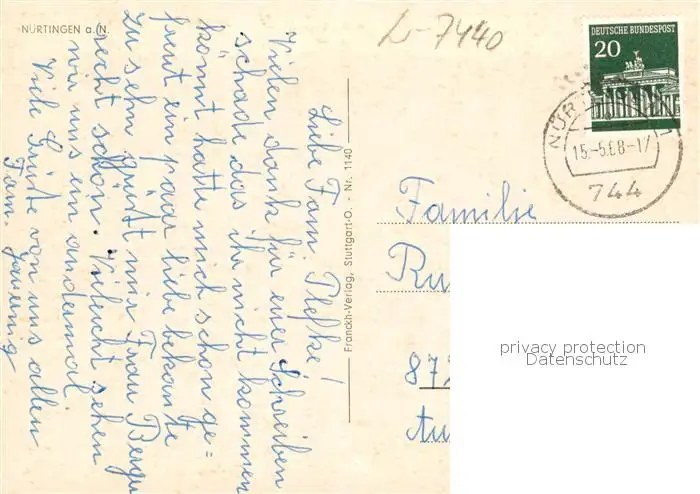 NÜRTINGEN a./N.
Liebe Fam. Plefke!
Vielen dank für euer Schreiben
schade das ihr nicht kommen
könnt hatte mich schon ge=
freut ein paar liebe bekannte
zu sehn grüßt mir Frau Berger
recht schön. Vileucht sehen
wir uns ein andermal
Viele Grüße von uns allen
Fam.
Franckh-Verlag, Stuttgart-O. - Nr. 1140
L-7440
DEUTSCHE BUNDESPOST
20
NÜRT
15.-5.68-17
744
Familie
Ru
87
privacy protection
Datenschutz